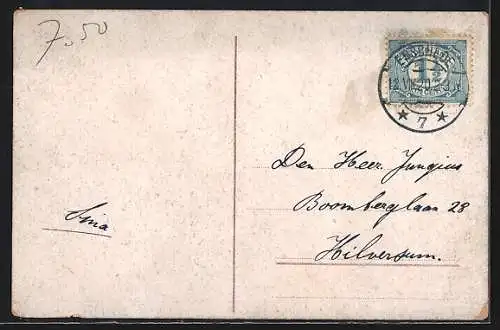 7.50
ENSCHEDE
1½
* 7 *
Den Heer Jungius
Boomberglaan 28
Hilversum.
Sina